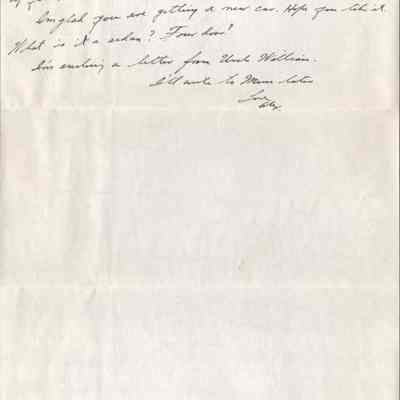 I'm glad you are getting a new car. Hope you like it.
What is it a sedan? Four door?
I'm enclosing a letter from Uncle William.
I'll write to Mom later
Love,